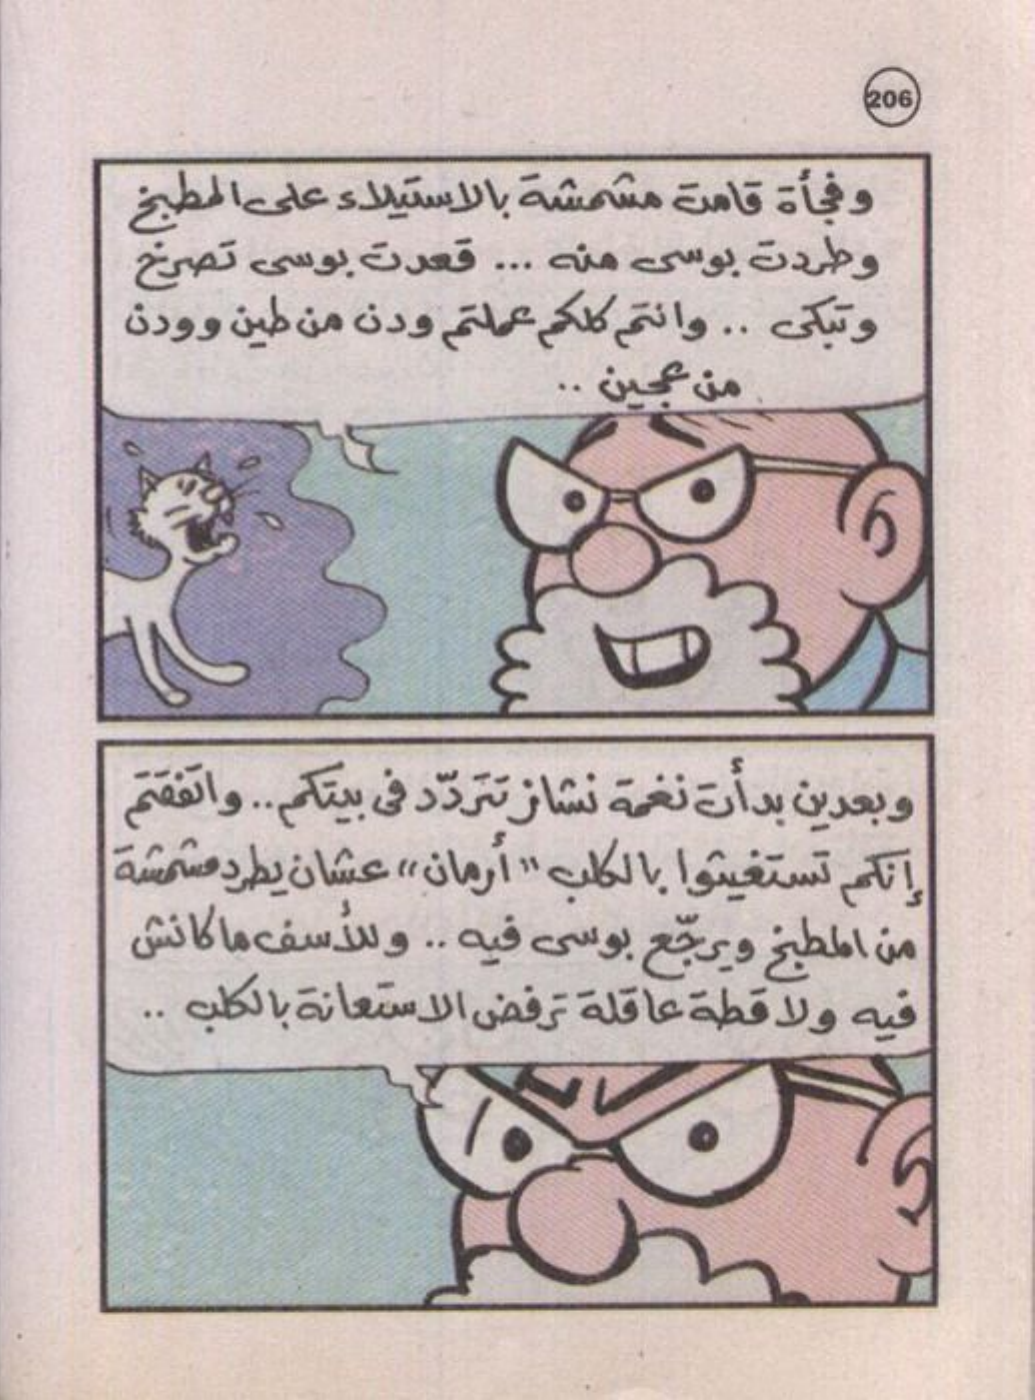 206
وفجأة قامت مشمشة بالاستيلاء على المطبخ
وطردت بوسى منه ... قعدت بوسى تصرخ
وتبكى .. وانتم كلكم عملتم ودن من طين وودن
من عجين ..
وبعدين بدأت نغمة نشاز تتردّد فى بيتكم.. واتفقتم
إنكم تستغيثوا بالكلب "أرمان" عشان يطرد مشمشة
من المطبخ ويرجّع بوسى فيه .. وللأسف ماكانش
فيه ولا قطة عاقلة ترفض الاستعانة بالكلب ..